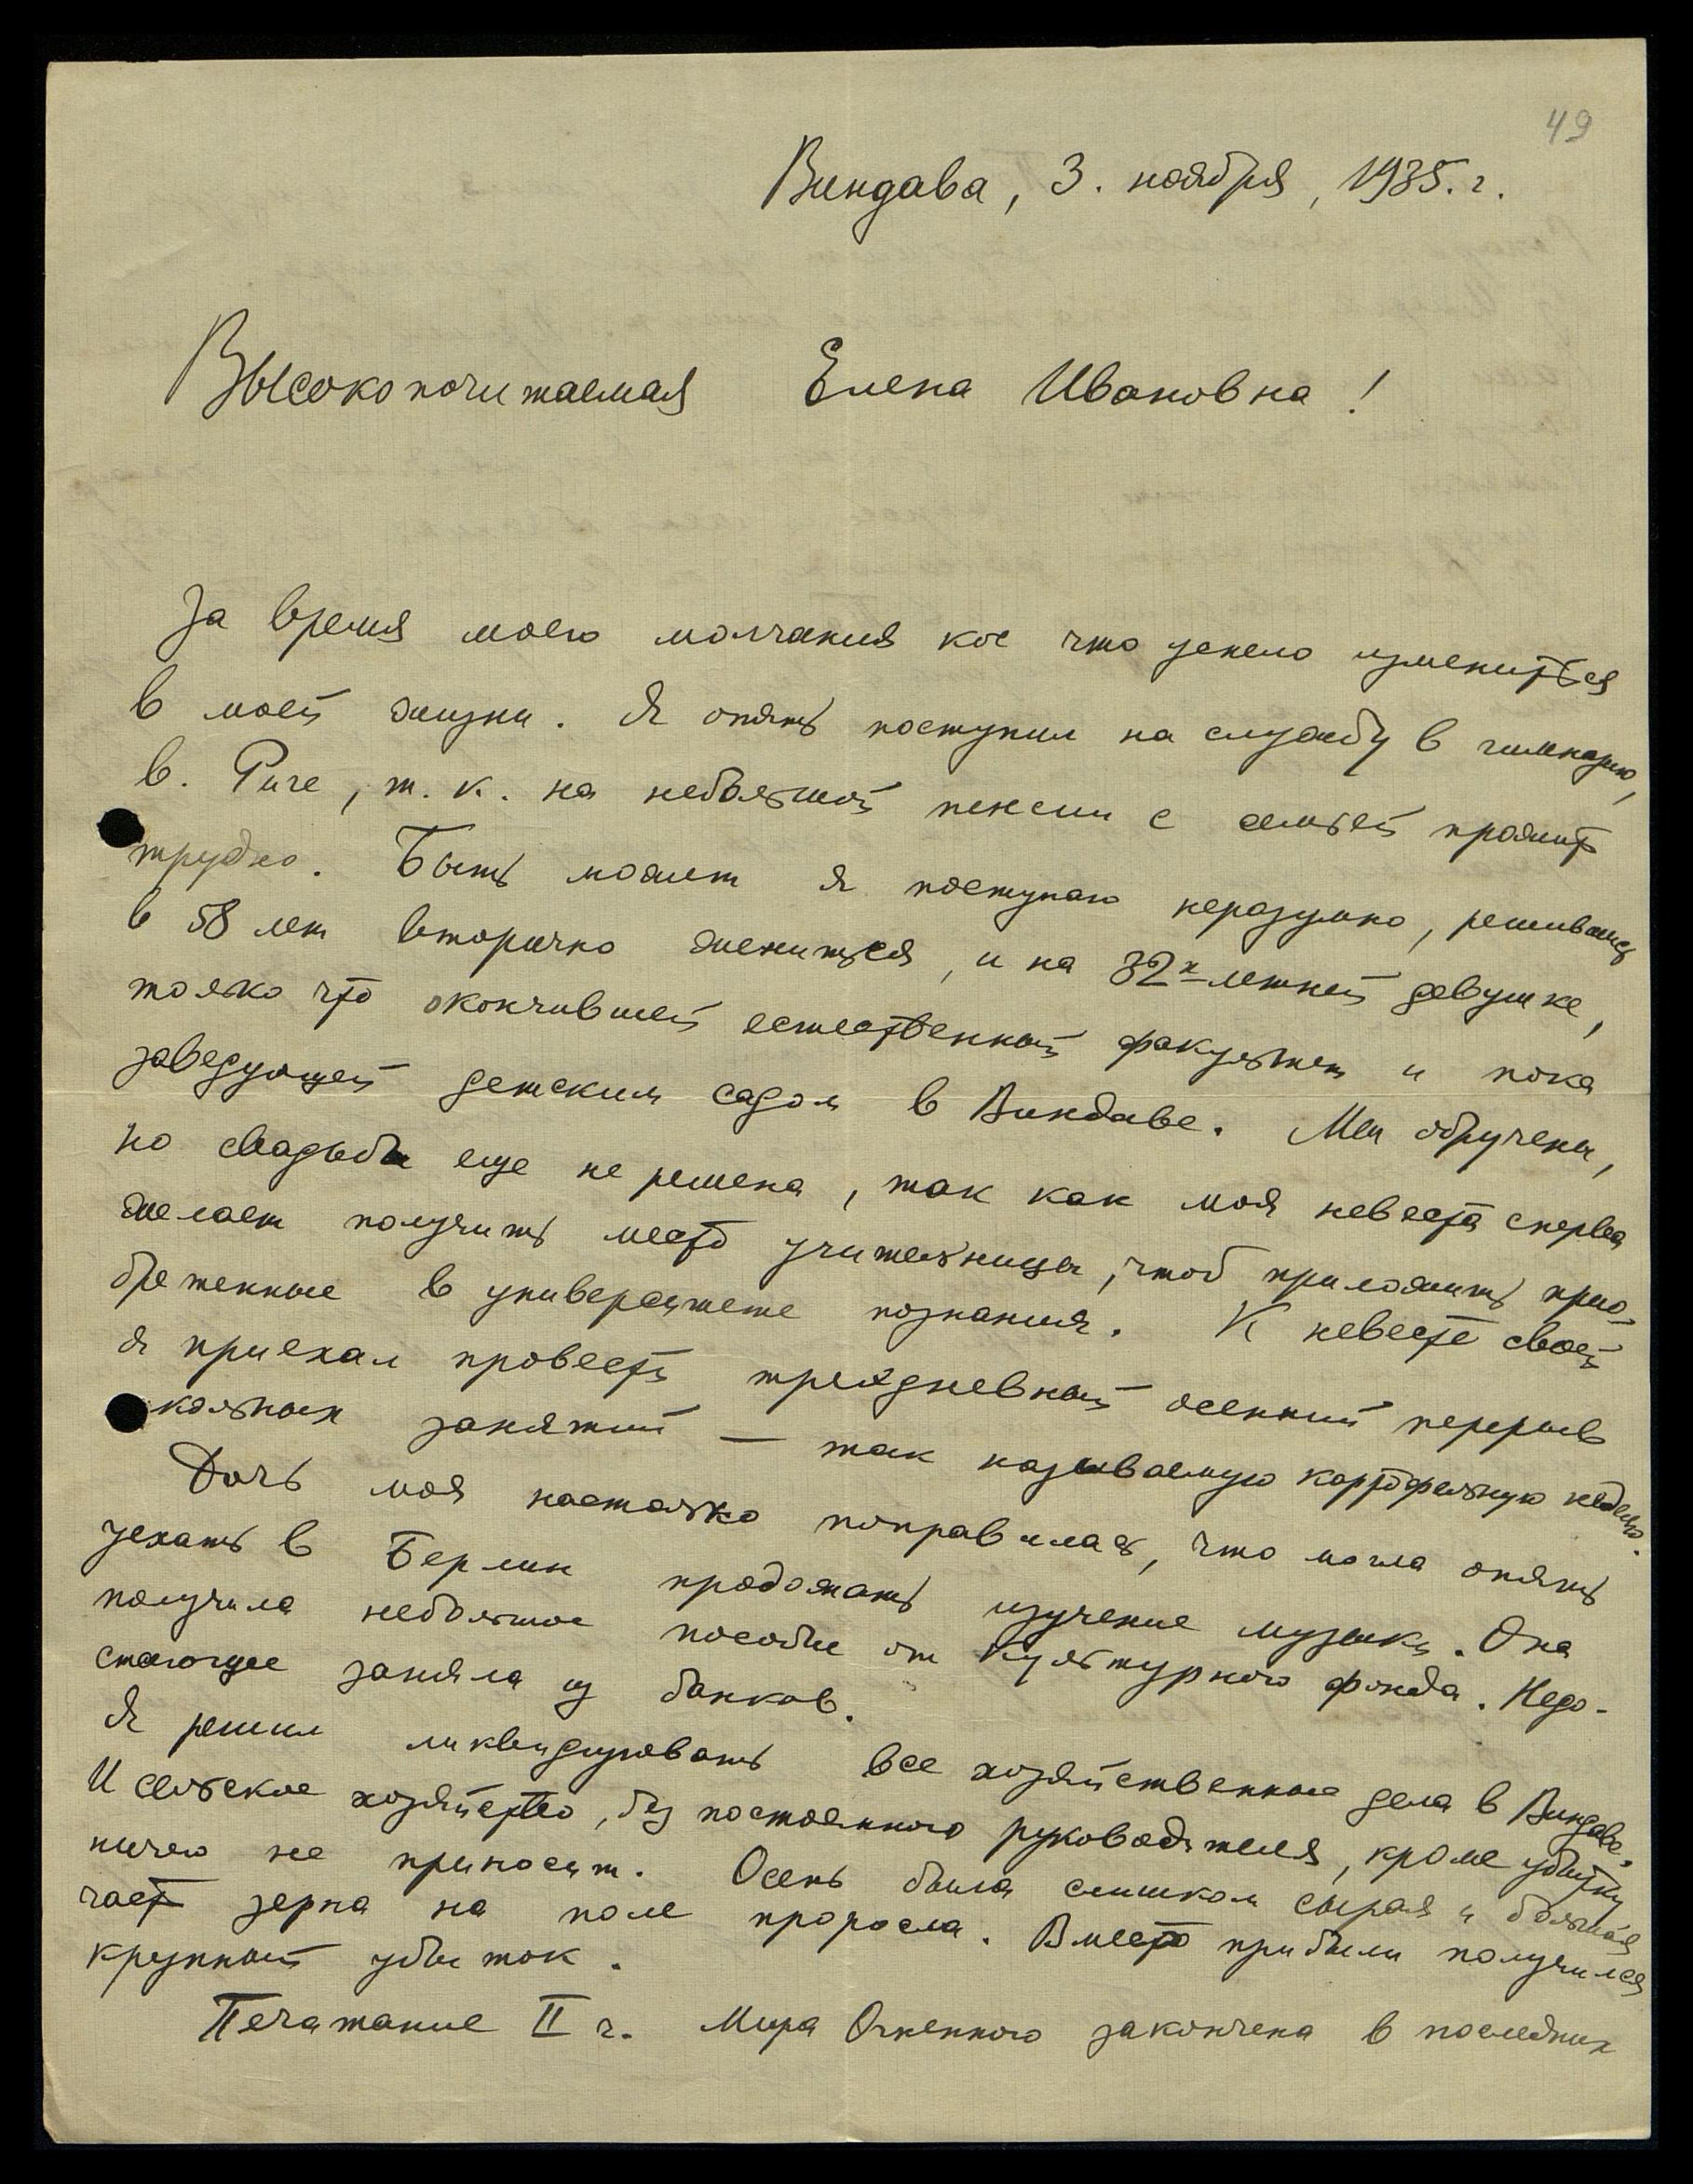 49
Виндава, 3. ноября, 1935. г.
Высокопочитаемая Елена Ивановна!
За время моего молчания кое что успело измениться
в моей жизни. Я опять поступил на службу в гимназию,
в. Риге, т. к. на небольшой пенсии с семьей прожить
трудно. Быть может я поступаю неразумно, решившись
в 58 лет вторично жениться, и на 32х-летней девушке,
только что окончившей естественный факультет и пока
заведующей детским садом в Виндаве. Мы обручены,
но свадьба еще не решена, так как моя невеста сперва
желает получить место учительницы, чтоб приложить прио-
бретенные в университете познания. К невесте своей
я приехал провести трехдневный осенний перерыв
школьных занятий — так называемую картофельную неделю.
Дочь моя настолько поправилась, что могла опять
уехать в Берлин продолжать изучение музыки. Она
получила небольшое пособие от Культурного фонда. Недо-
стающее заняла из банков.
Я решил ликвидировать все хозяйственные дела в Виндаве.
И сельское хозяйство, без постоянного руководителя, кроме убытку
ничего не приносит. Осень была слишком сырая и большая
часть зерна на поле проросла. Вместо прибыли получился
крупный убыток.
Печатание II ч. Мира Огненного закончена в последних